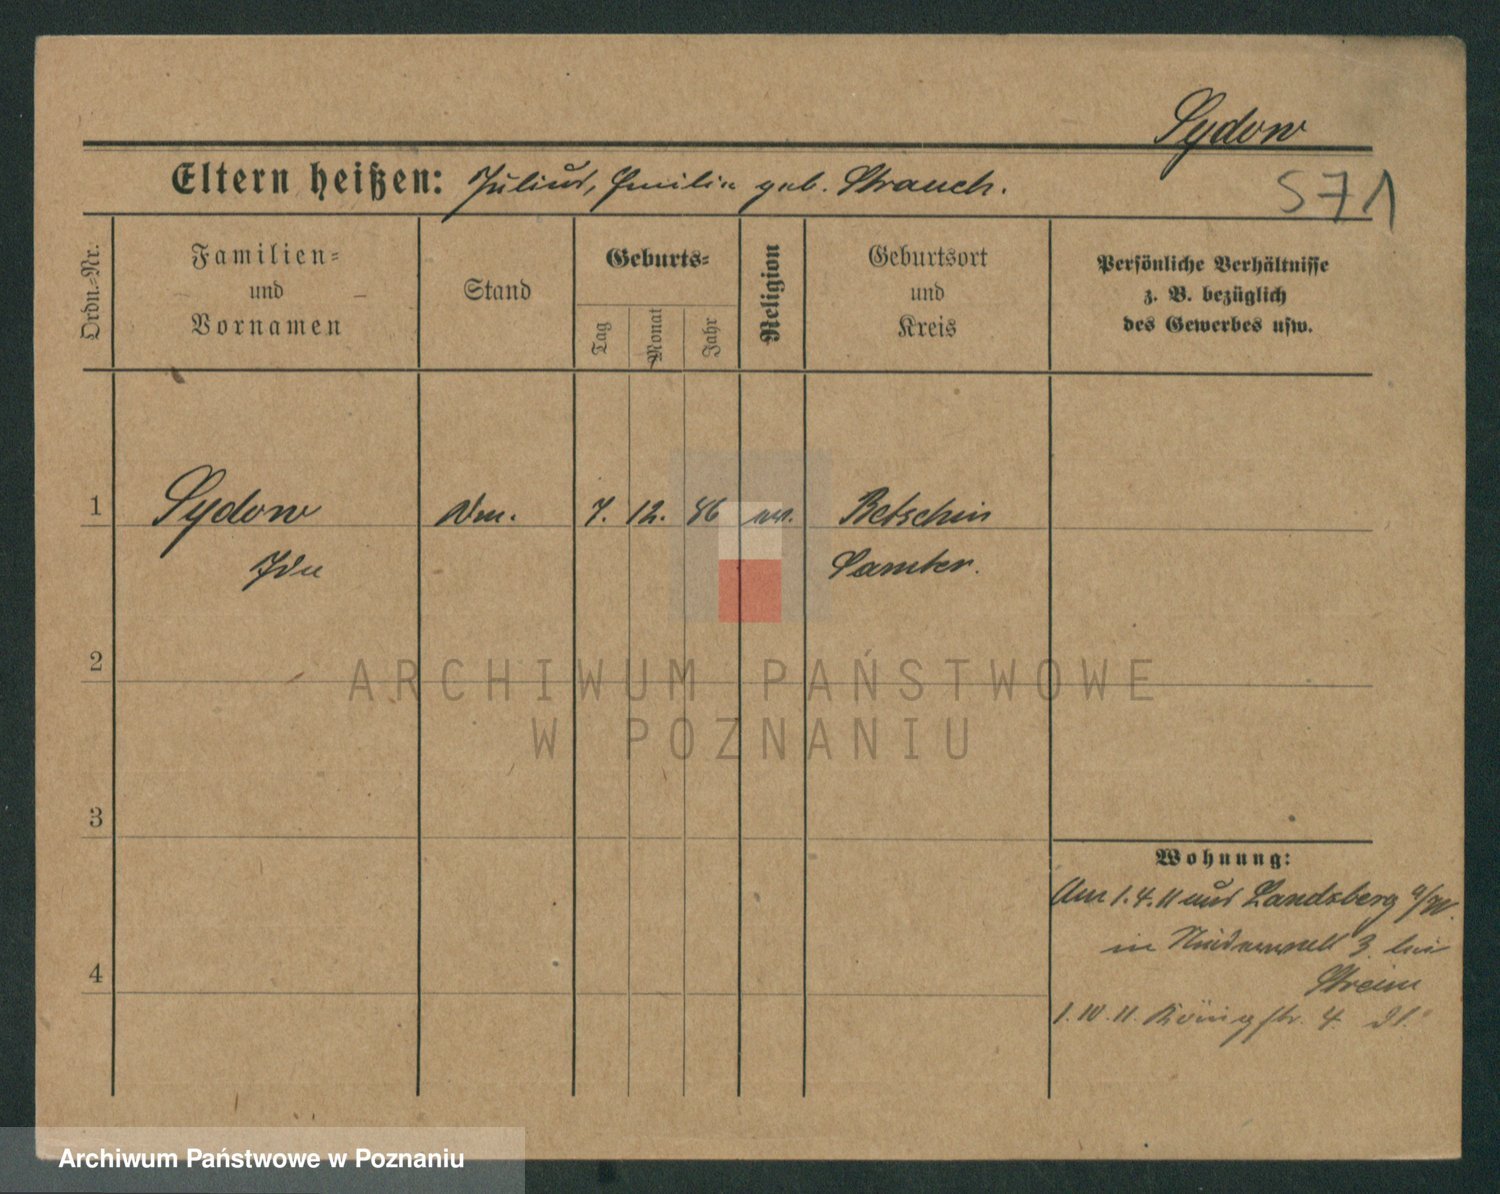 Sydow
Eltern heißen: Julius, Emilie geb. Strauch.
S71
Ordn.-Nr.
Familien-
und
Vornamen
Stand
Geburts-
Tag
Monat
Jahr
Religion
Geburtsort
und
Kreis
Persönliche Verhältnisse
z. B. bezüglich
des Gewerbes usw.
1 Sydow 7. 12. 86 Betschin
Ida Samter.
2
ARCHIWUM PAŃSTWOWE
W POZNANIU
3
Wohnung:
Am 1.4.11 aus Landsberg a/W.
in 3. bei
4
1.10.11. Königstr. 4.
Archiwum Państwowe w Poznaniu